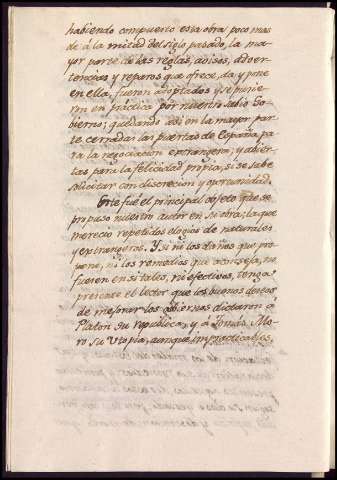 habiendo compuesto esta obra poco mas
de á la mitad del siglo pasado, la ma-
yor parte de las reglas, avisos, adver-
tencias y reparos que ofrece, da y pone
en ella, fueron adoptados y se pusie-
ron en práctica por nuestro sabio Go-
bierno; quedando asi en la mayor par-
te cerradas las puertas de España pa-
ra la negociacion extrangera; y abier-
tas para la felicidad propia, si se sabe
solicitar con discrecion y oportunidad.
Este fue el principal objeto que se
propuso nuestro autor en su obra; la que
merecio repetidos elogios de naturales
y extrangeros. Y si ni los daños que pro-
pone, ni los remedios que aconseja, no
fueren en si tales, ni efectivos, tenga
presente el lector, que los buenos deseos
de mejorar los gobiernos dictaron á
Platon su republica, y á Tomás Mo-
ro su Utopia, aunque impracticables,